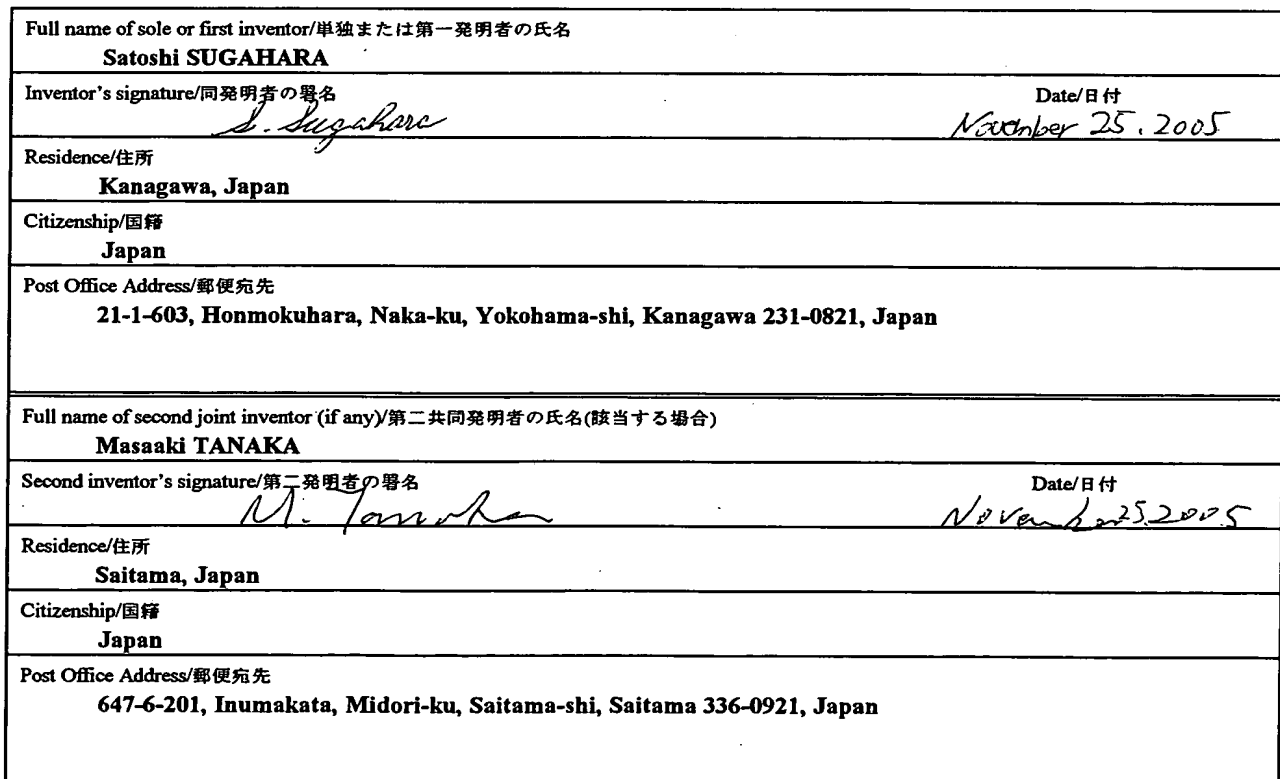 Full name of sole or first inventor/単独または第一発明者の氏名
Satoshi SUGAHARA
Inventor's signature/同発明者の署名 Date/日付
S. Sugahara November 25. 2005
Residence/住所
Kanagawa, Japan
Citizenship/国籍
Japan
Post Office Address/郵便宛先
21-1-603, Honmokuhara, Naka-ku, Yokohama-shi, Kanagawa 231-0821, Japan
Full name of second joint inventor (if any)/第二共同発明者の氏名(該当する場合)
Masaaki TANAKA
Second inventor's signature/第二発明者の署名 Date/日付
M. Tanaka November 25. 2005
Residence/住所
Saitama, Japan
Citizenship/国籍
Japan
Post Office Address/郵便宛先
647-6-201, Inumakata, Midori-ku, Saitama-shi, Saitama 336-0921, Japan